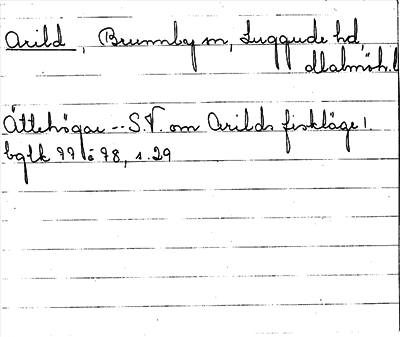 Arild, Brunnby sn, Luggude hd,
Malmöh. l
Ättehögar -- S.V. om Arilds fiskläge.
bglk 77 à 78, s. 29